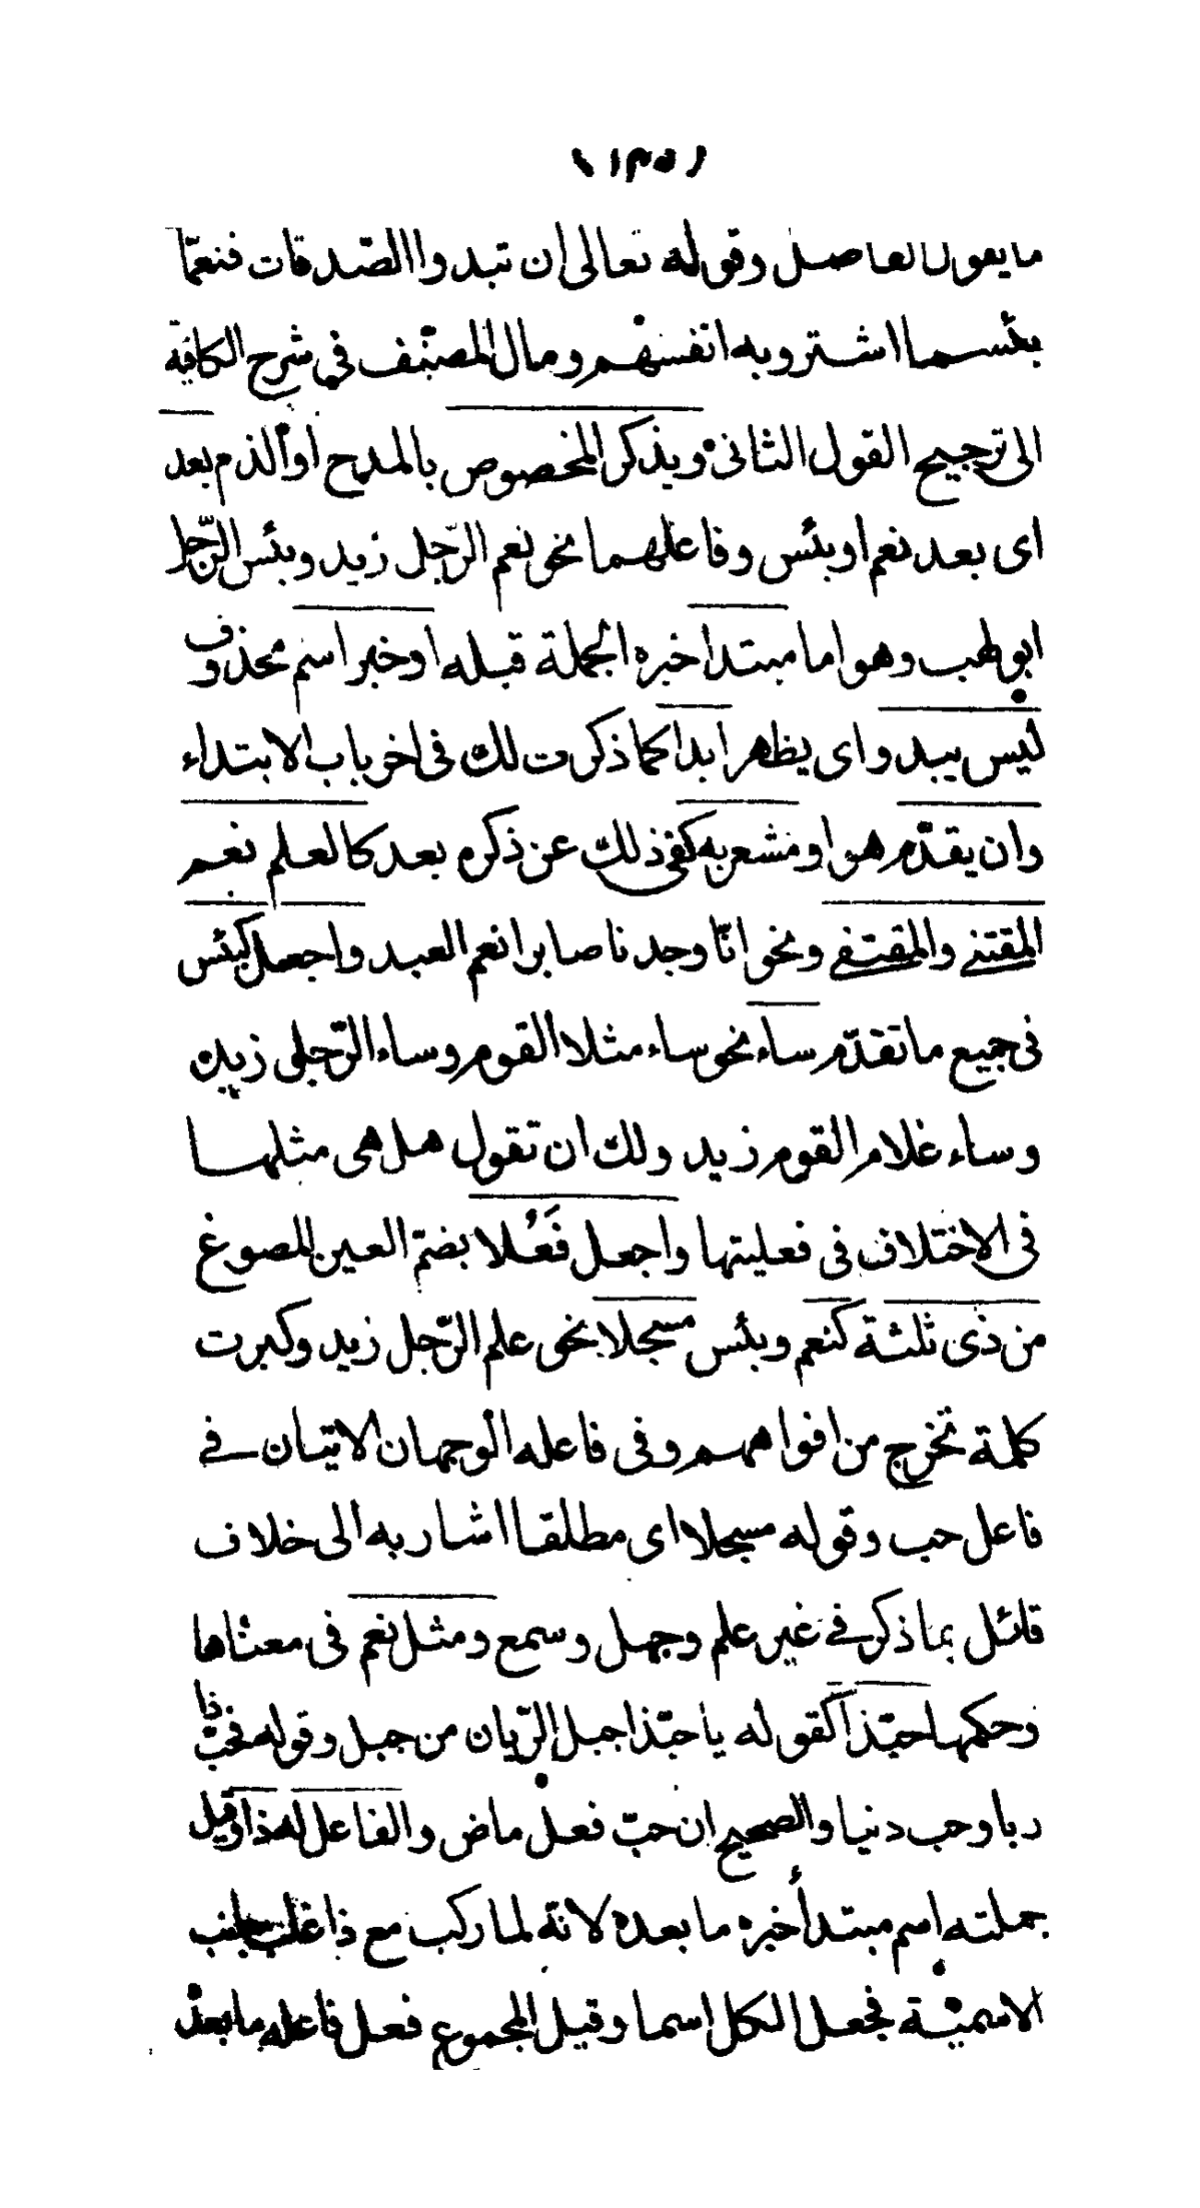 ما يقول الفاضل وقوله تعالى ان تبدوا الصّدقات فنعمّا
بئسما اشتروبه انفسهم ومال المصنّف في شرح الكافية
الى ترجيح القول الثاني ويذكر المخصوص بالمدح او الذم بعد
اى بعد نعم او بئس وفاعلهما نحو نعم الرّجل زيد وبئس الرّجل
ابو لهب وهو اما مبتدا خبره الجملة قبله او خبر اسم محذوف
ليس يبدو اى يظهر ابدا كما ذكرت لك فى اخر باب الابتداء
وان يقدّم هو او مشعر به كفى ذلك عن ذكره بعد كالعلم نعم
المقتنى والمقتفى ونحو انّا وجدنا صابرا نعم العبد واجعل كبئس
فى جميع ما تقدّم ساء نحو ساء مثلا القوم وساء الرّجل زيد
وساء غلام القوم زيد ولك ان تقول هل هى مثلها
فى الاختلاف فى فعليتها واجعل فَعُلا بضمّ العين المصوغ
من ذى ثلثة كنعم وبئس مسجلا نحو علم الرّجل زيد وكبرت
كلمة تخرج من افواههم وفى فاعله الوجهان الاتيان فى
فاعل حب وقوله مسجلا اى مطلقا اشار به الى خلاف
قائل بما ذكر فى غير علم وجهل وسمع ومثل نعم فى معناها
وحكمها حبّذا كقوله يا حبّذا جبل الرّيان من جبل وقوله فحبّذا
ربا وحب دنيا والصحيح ان حبّ فعل ماض والفاعل له ذا وقيل
جملته اسم مبتدأ خبره ما بعده لانّه لما ركب مع ذا غلب جانب
الاسميّة فجعل الكل اسما وقيل المجموع فعل فاعله ما بعده